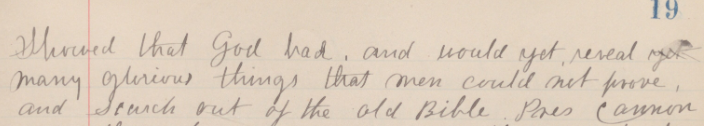 19
Showed that God had, and would yet, reveal yet
many glorious things that men could not prove,
and search out of the old Bible. Pres Cannon